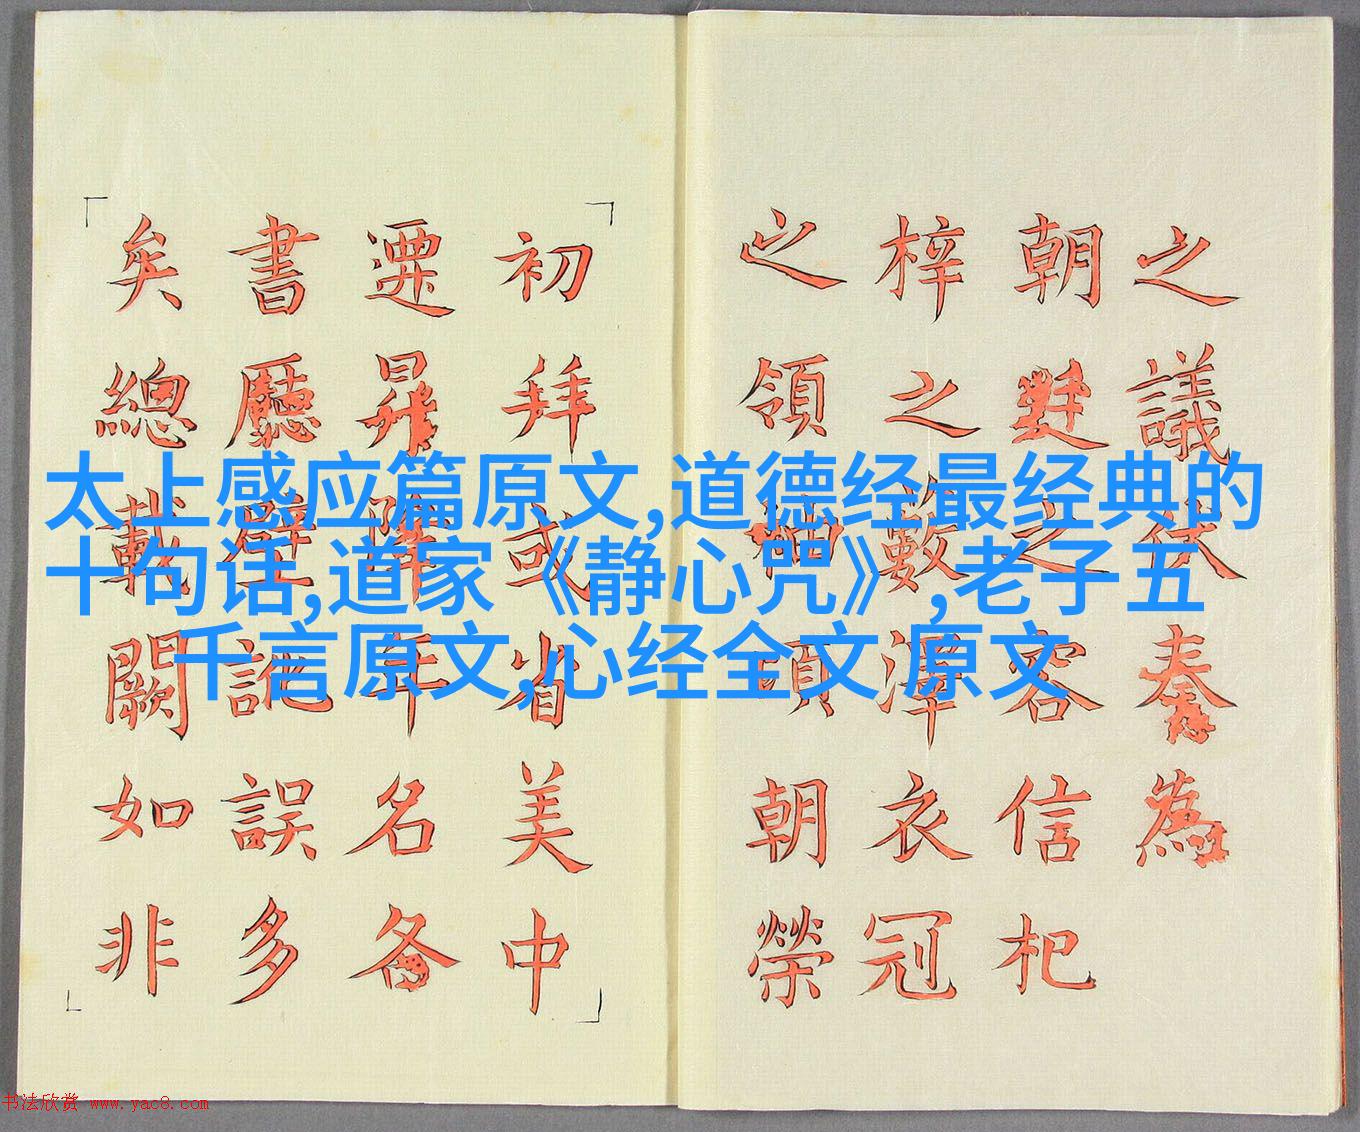 之議伏奏為
朝之容信杞
梓之藪澤衣冠
之領袖頃朝榮
初拜或省美中
遷昇降年名
書廳壁訛誤多
矣總載闕如非
太上感应篇原文,道德经最经典的
十句话,道家《静心咒》,老子五
千言原文,心经全文 原文
书法欣赏 www.yac8.com